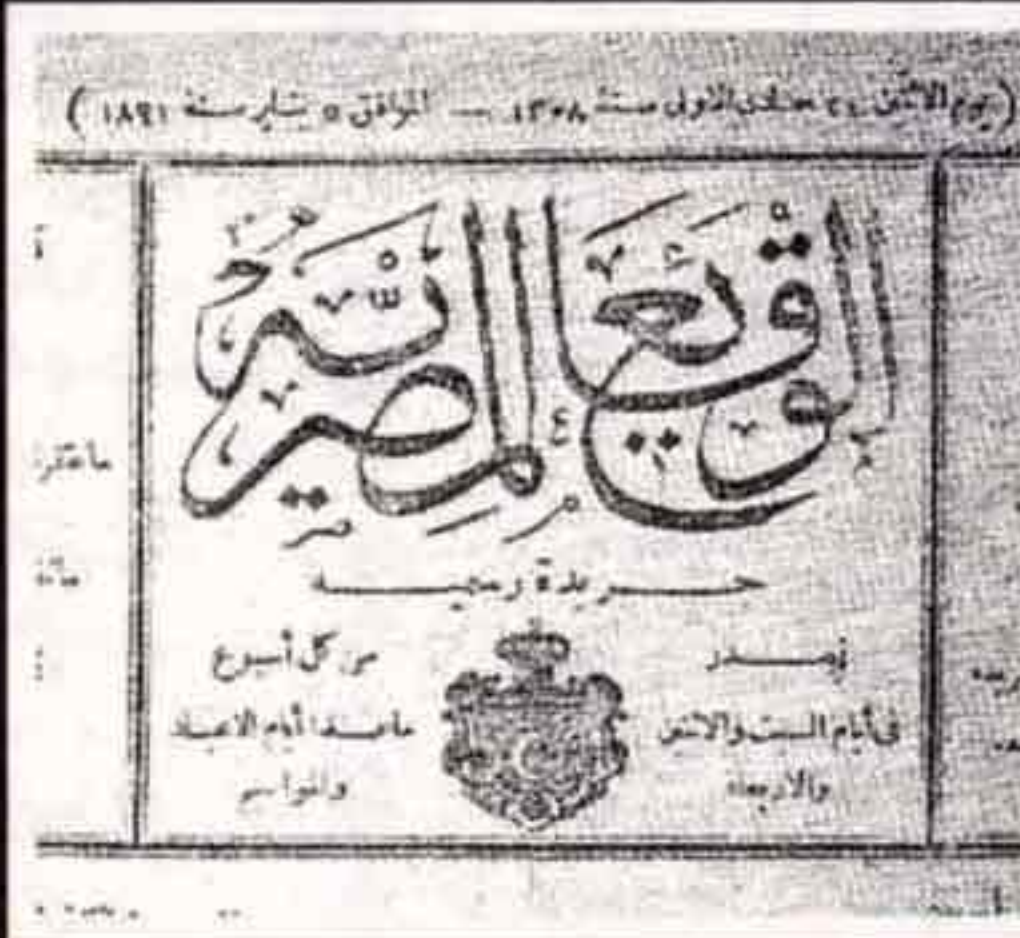 (يوم الاثنين ٢٤ جمادى الاولى سنة ١٣٠٨ — الموافق ٥ يناير سنة ١٨٩١)
الوقايع المصرية
جريدة رسمية
تصدر
فى أيام السبت والاثنين
والاربعاء
من كل أسبوع
ماعدا أيام الاعياد
والمواسم